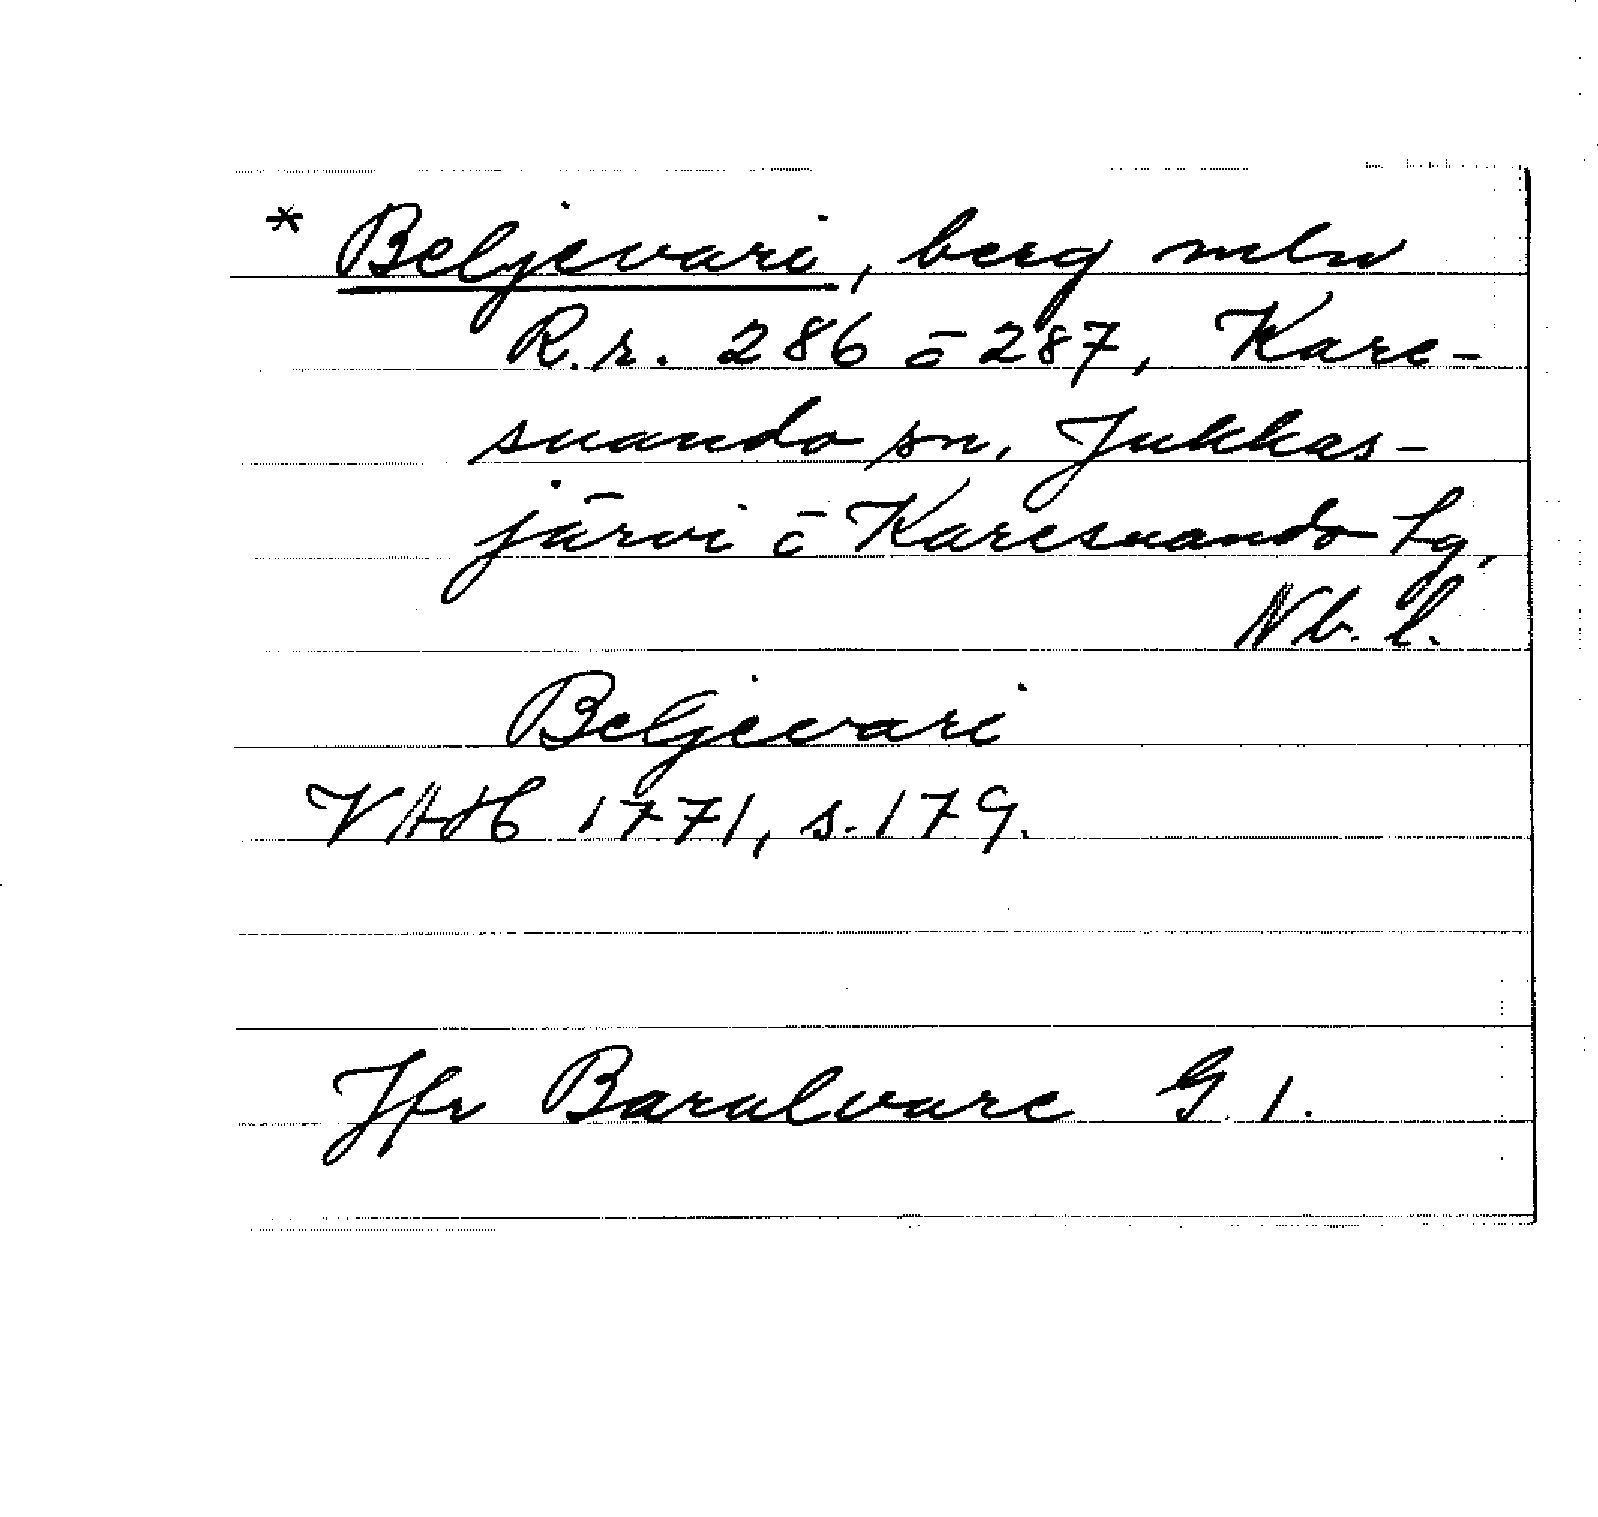 * Beljevari, berg mlw
R.r. 286 ō 287, Kare-
suando sn, Jukkas-
järvi ō Karesuando lg,
Nb. l.
Beljevari
VAH 1771, s. 179.
Jfr Baralvare G. 1.